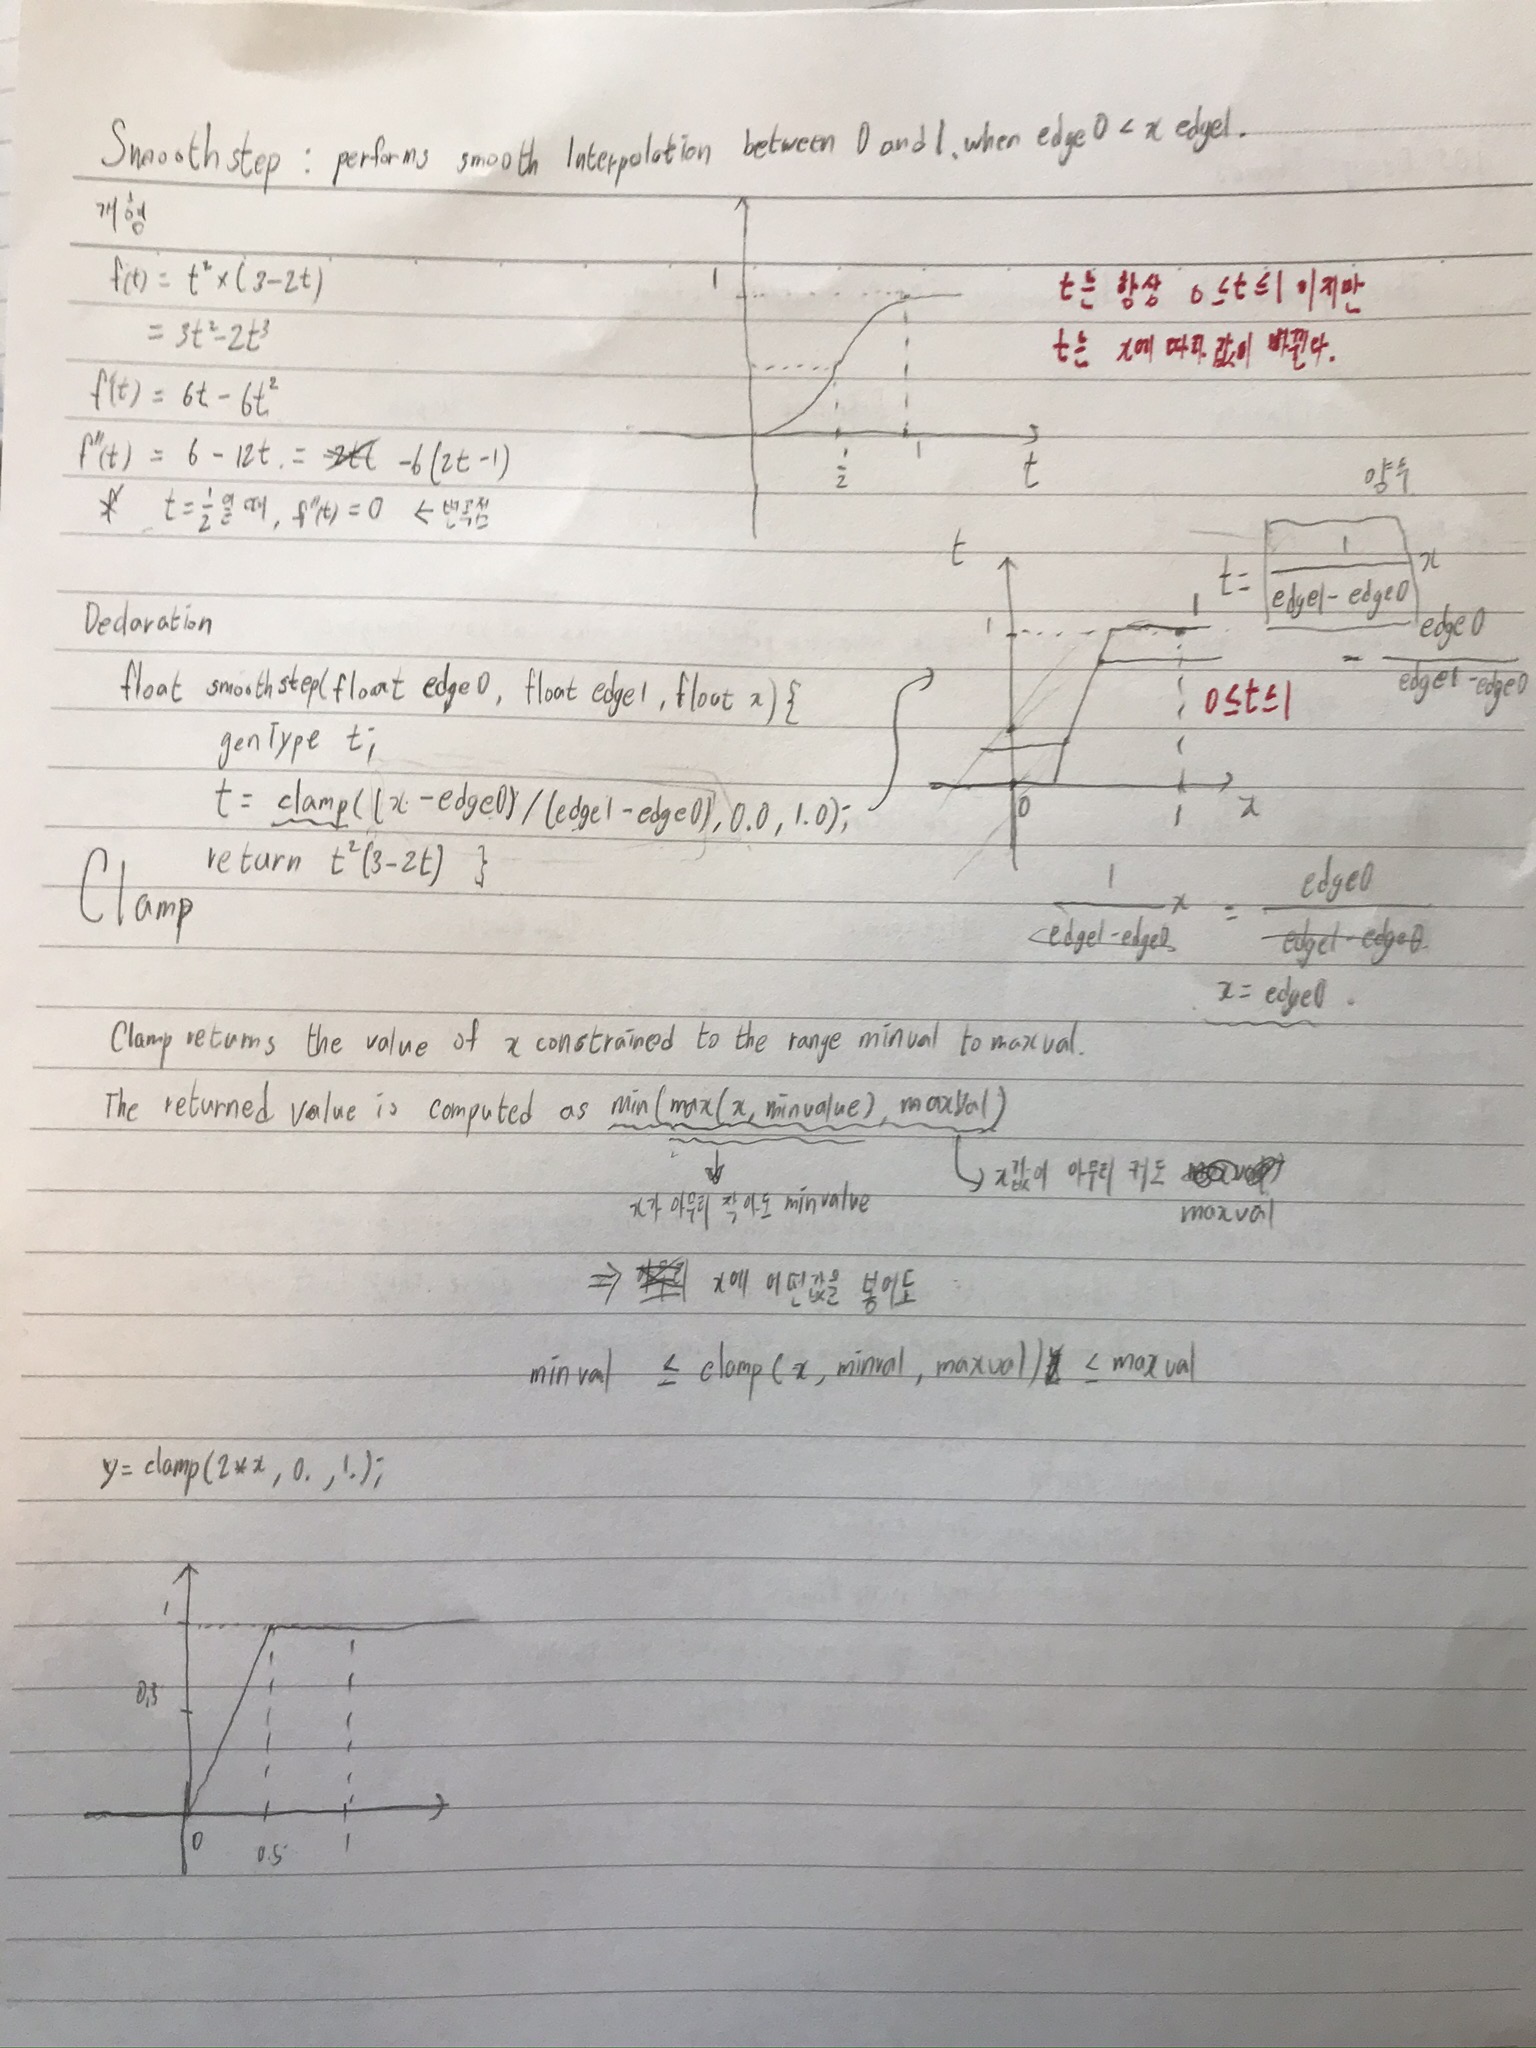 Smoothstep : performs smooth Interpolation between 0 and 1, when edge0 < x edge1.
개형
f(t) = t² × (3-2t)
= 3t²-2t³
f'(t) = 6t - 6t²
f''(t) = 6 - 12t = -6(2t-1)
* t=1/2 일 때, f''(t) = 0 < 변곡점
1
1/2
1
t
t는 항상 0≤t≤1 이지만
t는 x에 따라 값이 바뀐다.
양수
t = 1/(edge1-edge0) x
- edge0/(edge1-edge0)
t
1
1
0≤t≤1
0
1
x
Declaration
float smoothstep(float edge0, float edge1, float x){
genType t;
t = clamp((x-edge0)/(edge1-edge0), 0.0, 1.0);
return t²(3-2t) }
1/(edge1-edge0) x = edge0/(edge1-edge0)
x = edge0.
Clamp
Clamp returns the value of x constrained to the range minval to maxval.
The returned value is computed as min(max(x, minvalue), maxval)
x가 아무리 작아도 minvalue
x값이 아무리 커도
maxval
⇒ x에 어떤값을 넣어도
minval ≤ clamp(x, minval, maxval) ≤ maxval
y = clamp(2*x, 0., 1.);
1
0
0.5
1